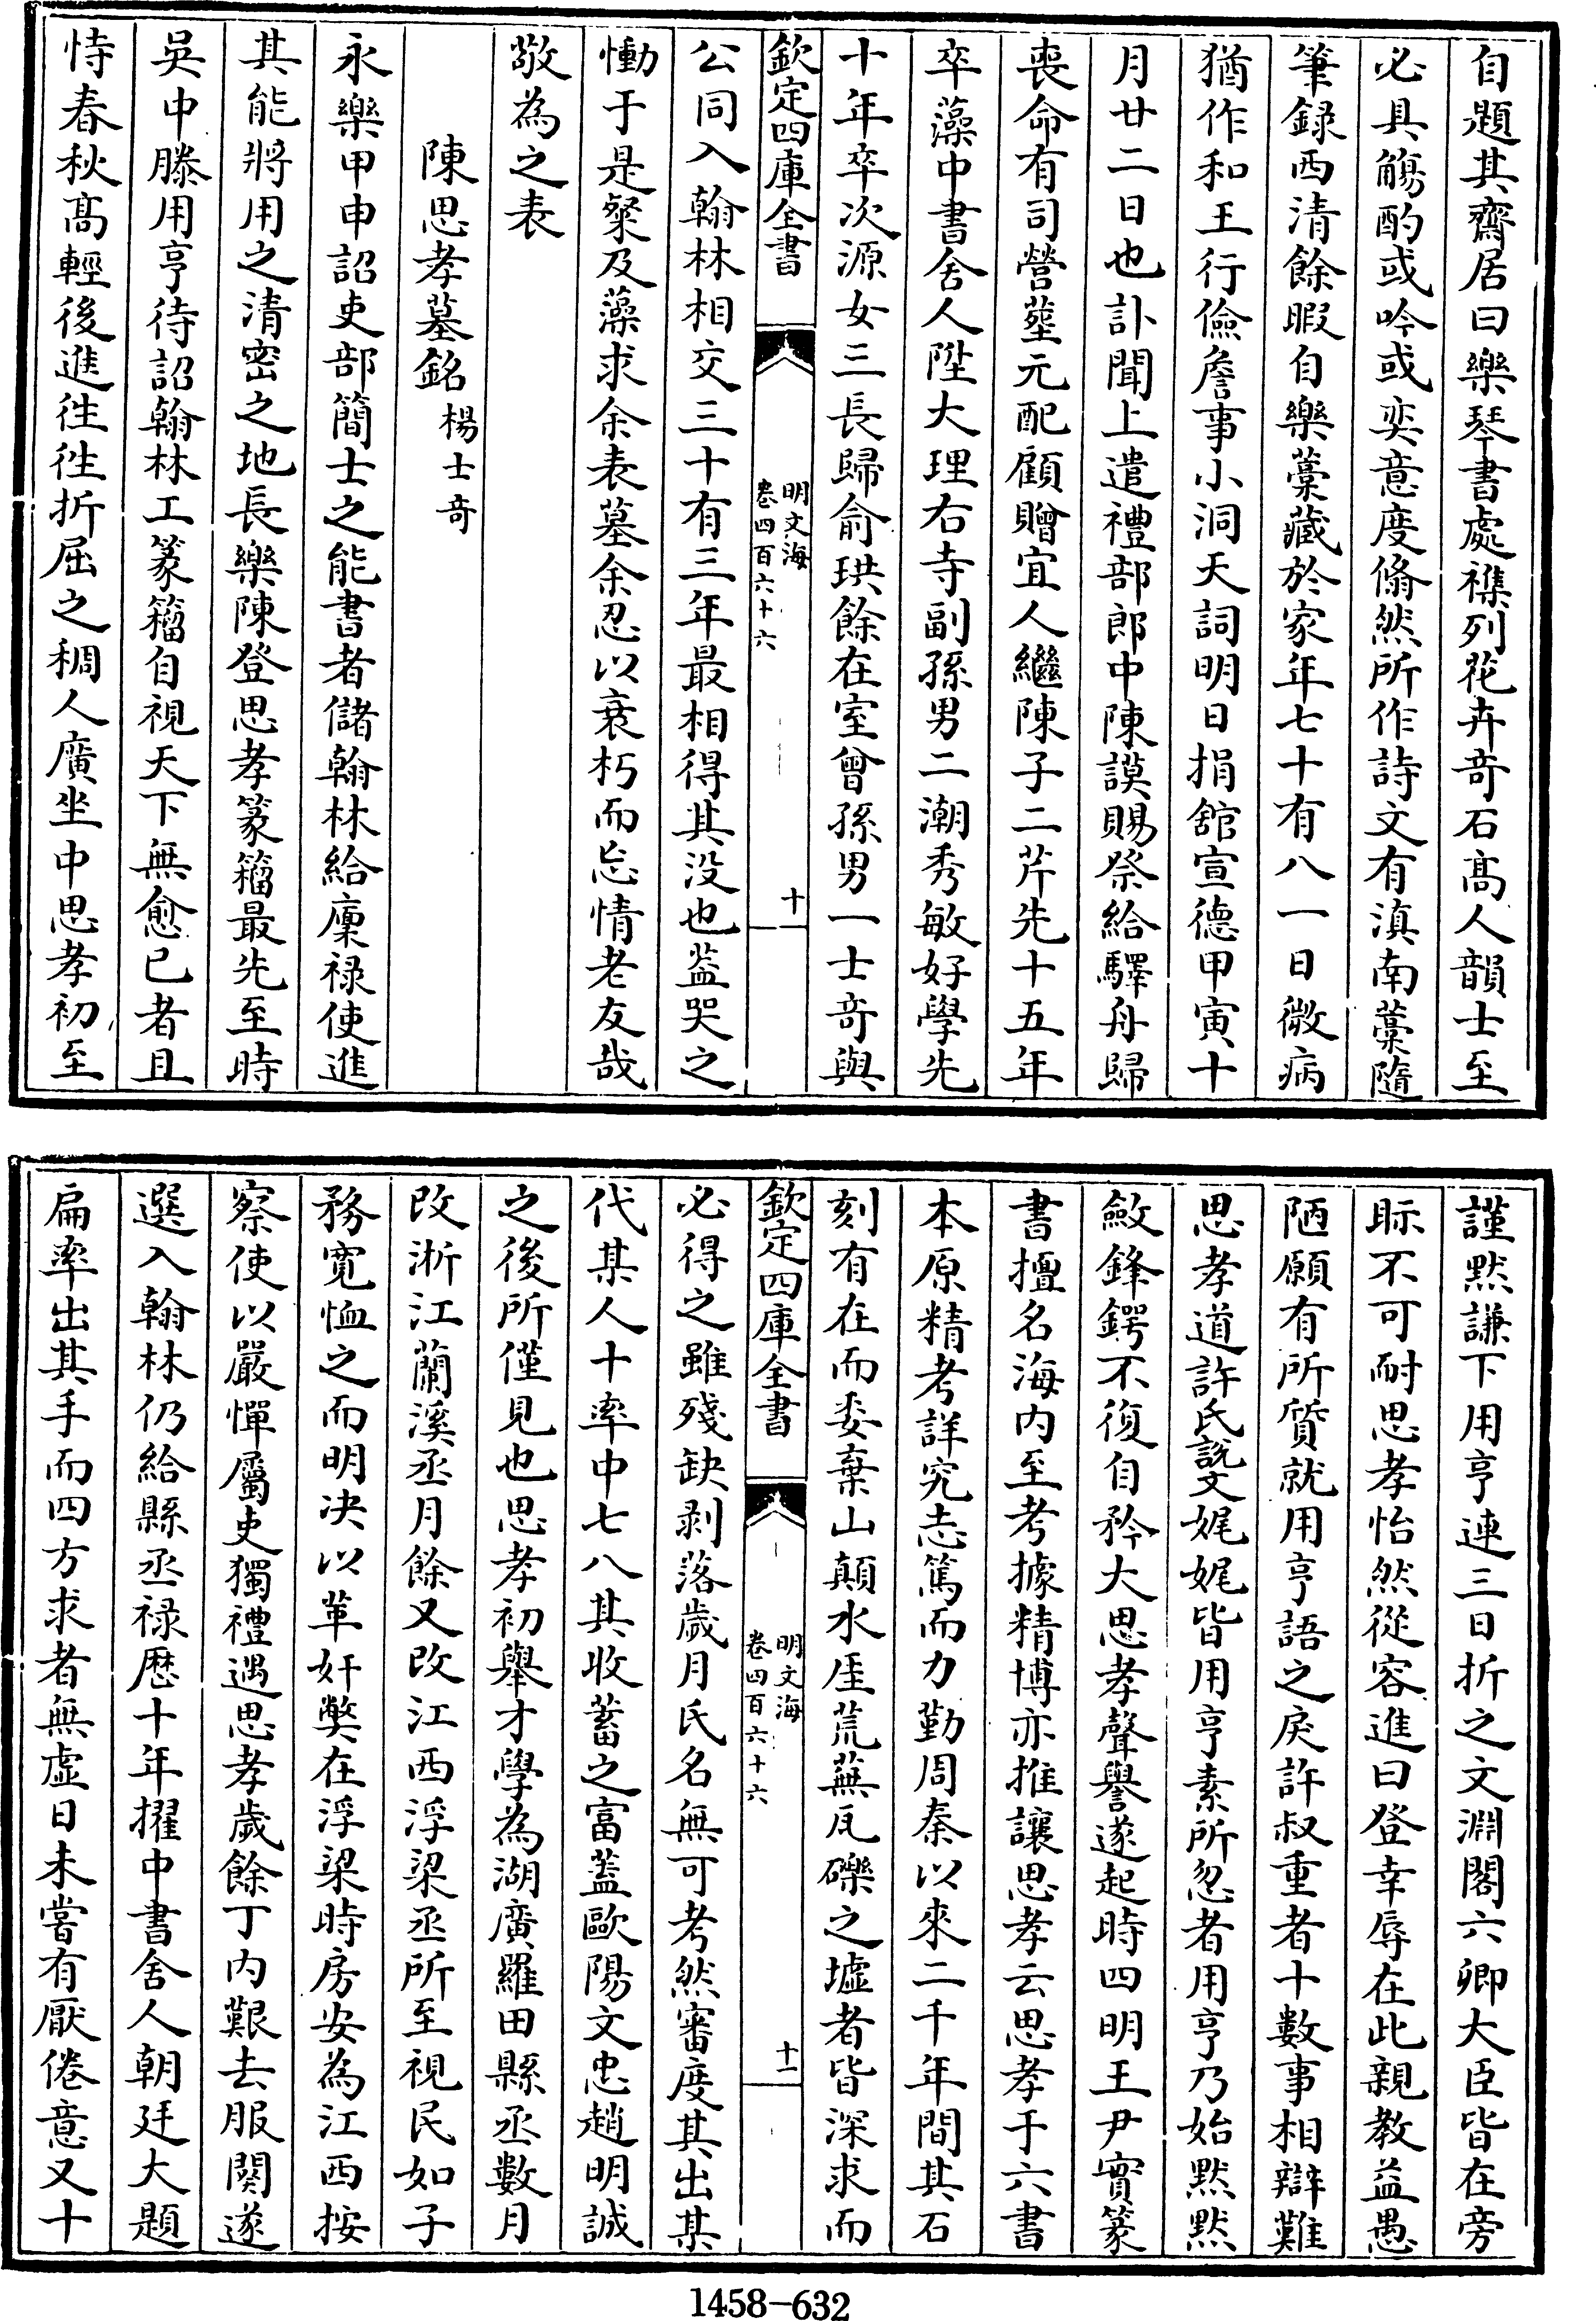 自題其齋居曰樂琴書處襍列花卉竒石髙人韻士至
必具觴酌或吟或奕意度翛然所作詩文有滇南藁隨
筆録西清餘暇自樂藁藏於家年七十有八一日微病
猶作和王行儉詹事小洞天詞明日捐舘宣德甲寅十
月廿二日也訃聞上遣禮部郎中陳謨賜祭給驛舟歸
喪命有司營塟元配顧贈宜人繼陳子二芹先十五年
卒藻中書舍人陞大理右寺副孫男二潮秀敏好學先
十年卒次源女三長歸俞珙餘在室曾孫男一士竒與
欽定四庫全書
明文海
卷四百六十六
十一
公同入翰林相交三十有三年最相得其没也葢哭之
慟于是粲及藻求余表墓余忍以衰朽而忘情老友哉
敬為之表
陳思孝墓銘 楊士竒
永樂甲申詔吏部簡士之能書者儲翰林給廩禄使進
其能將用之清密之地長樂陳登思孝篆籕最先至時
吳中滕用亨待詔翰林工篆籕自視天下無愈已者且
恃春秋髙輕後進徃徃折屈之稠人廣坐中思孝初至
謹黙謙下用亨連三日折之文淵閣六卿大臣皆在旁
眎不可耐思孝怡然從容進曰登幸辱在此親教益愚
陋願有所質就用亨語之戾許叔重者十數事相辯難
思孝道許氏說文娓娓皆用亨素所忽者用亨乃始黙黙
斂鋒鍔不復自矜大思孝聲譽遂起時四明王尹實篆
書擅名海内至考據精博亦推讓思孝云思孝于六書
本原精考詳究志篤而力勤周秦以來二千年間其石
刻有在而委棄山顛水厓荒蕪瓦礫之墟者皆深求而
欽定四庫全書
明文海
卷四百六十六
十二
必得之雖殘缺剥落歲月氏名無可考然審度其出某
代某人十率中七八其收蓄之富葢歐陽文忠趙明誠
之後所僅見也思孝初舉才學為湖廣羅田縣丞數月
改浙江蘭溪丞月餘又改江西浮梁丞所至視民如子
務寛恤之而明决以革奸獘在浮梁時房安為江西按
察使以嚴憚屬吏獨禮遇思孝歲餘丁内艱去服闋遂
選入翰林仍給縣丞禄歴十年擢中書舍人朝廷大題
扁率出其手而四方求者無虚日未嘗有厭倦意又十
1458-632